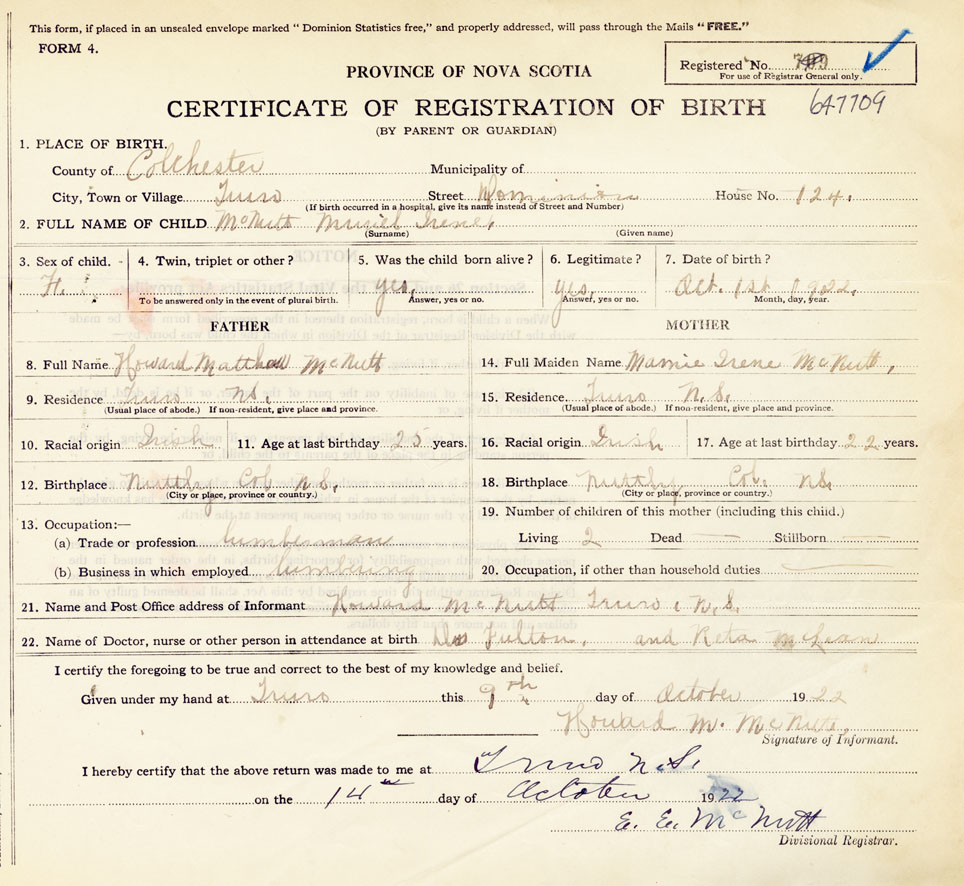 This form, if placed in an unsealed envelope marked "Dominion Statistics free," and properly addressed, will pass through the Mails "FREE."
FORM 4.
Registered No.
For use of Registrar General only.
PROVINCE OF NOVA SCOTIA
CERTIFICATE OF REGISTRATION OF BIRTH 647709
(BY PARENT OR GUARDIAN)
1. PLACE OF BIRTH.
County of Colchester Municipality of
City, Town or Village Truro Street Dominion House No. 124.
(If birth occurred in a hospital, give its name instead of Street and Number)
2. FULL NAME OF CHILD McNutt Muriel Irene,
(Surname) (Given name)
3. Sex of child. 4. Twin, triplet or other? 5. Was the child born alive? 6. Legitimate? 7. Date of birth?
F. yes, yes, Oct. 1st 1922.
To be answered only in the event of plural birth. Answer, yes or no. Answer, yes or no. Month, day, year.
FATHER MOTHER
8. Full Name Howard Matthew McNutt 14. Full Maiden Name Mamie Irene McNutt,
9. Residence Truro N.S. 15. Residence Truro N.S.
(Usual place of abode.) If non-resident, give place and province. (Usual place of abode.) If non-resident, give place and province.
10. Racial origin Irish 11. Age at last birthday 25 years. 16. Racial origin Irish 17. Age at last birthday 22 years.
12. Birthplace Nuttby Col. N.S. 18. Birthplace Nuttby Col. N.S.
(City or place, province or country.) (City or place, province or country.)
13. Occupation:— 19. Number of children of this mother (including this child.)
(a) Trade or profession lumberman Living 2 Dead — Stillborn —
(b) Business in which employed lumbering 20. Occupation, if other than household duties —
21. Name and Post Office address of Informant Howard McNutt Truro, N.S.
22. Name of Doctor, nurse or other person in attendance at birth Fulton, and Reta McLean
I certify the foregoing to be true and correct to the best of my knowledge and belief.
Given under my hand at Truro this 9th day of October 1922
Howard M. McNutt,
Signature of Informant.
I hereby certify that the above return was made to me at Truro N.S.
on the 14th day of October 1922
E. E. McNutt
Divisional Registrar.